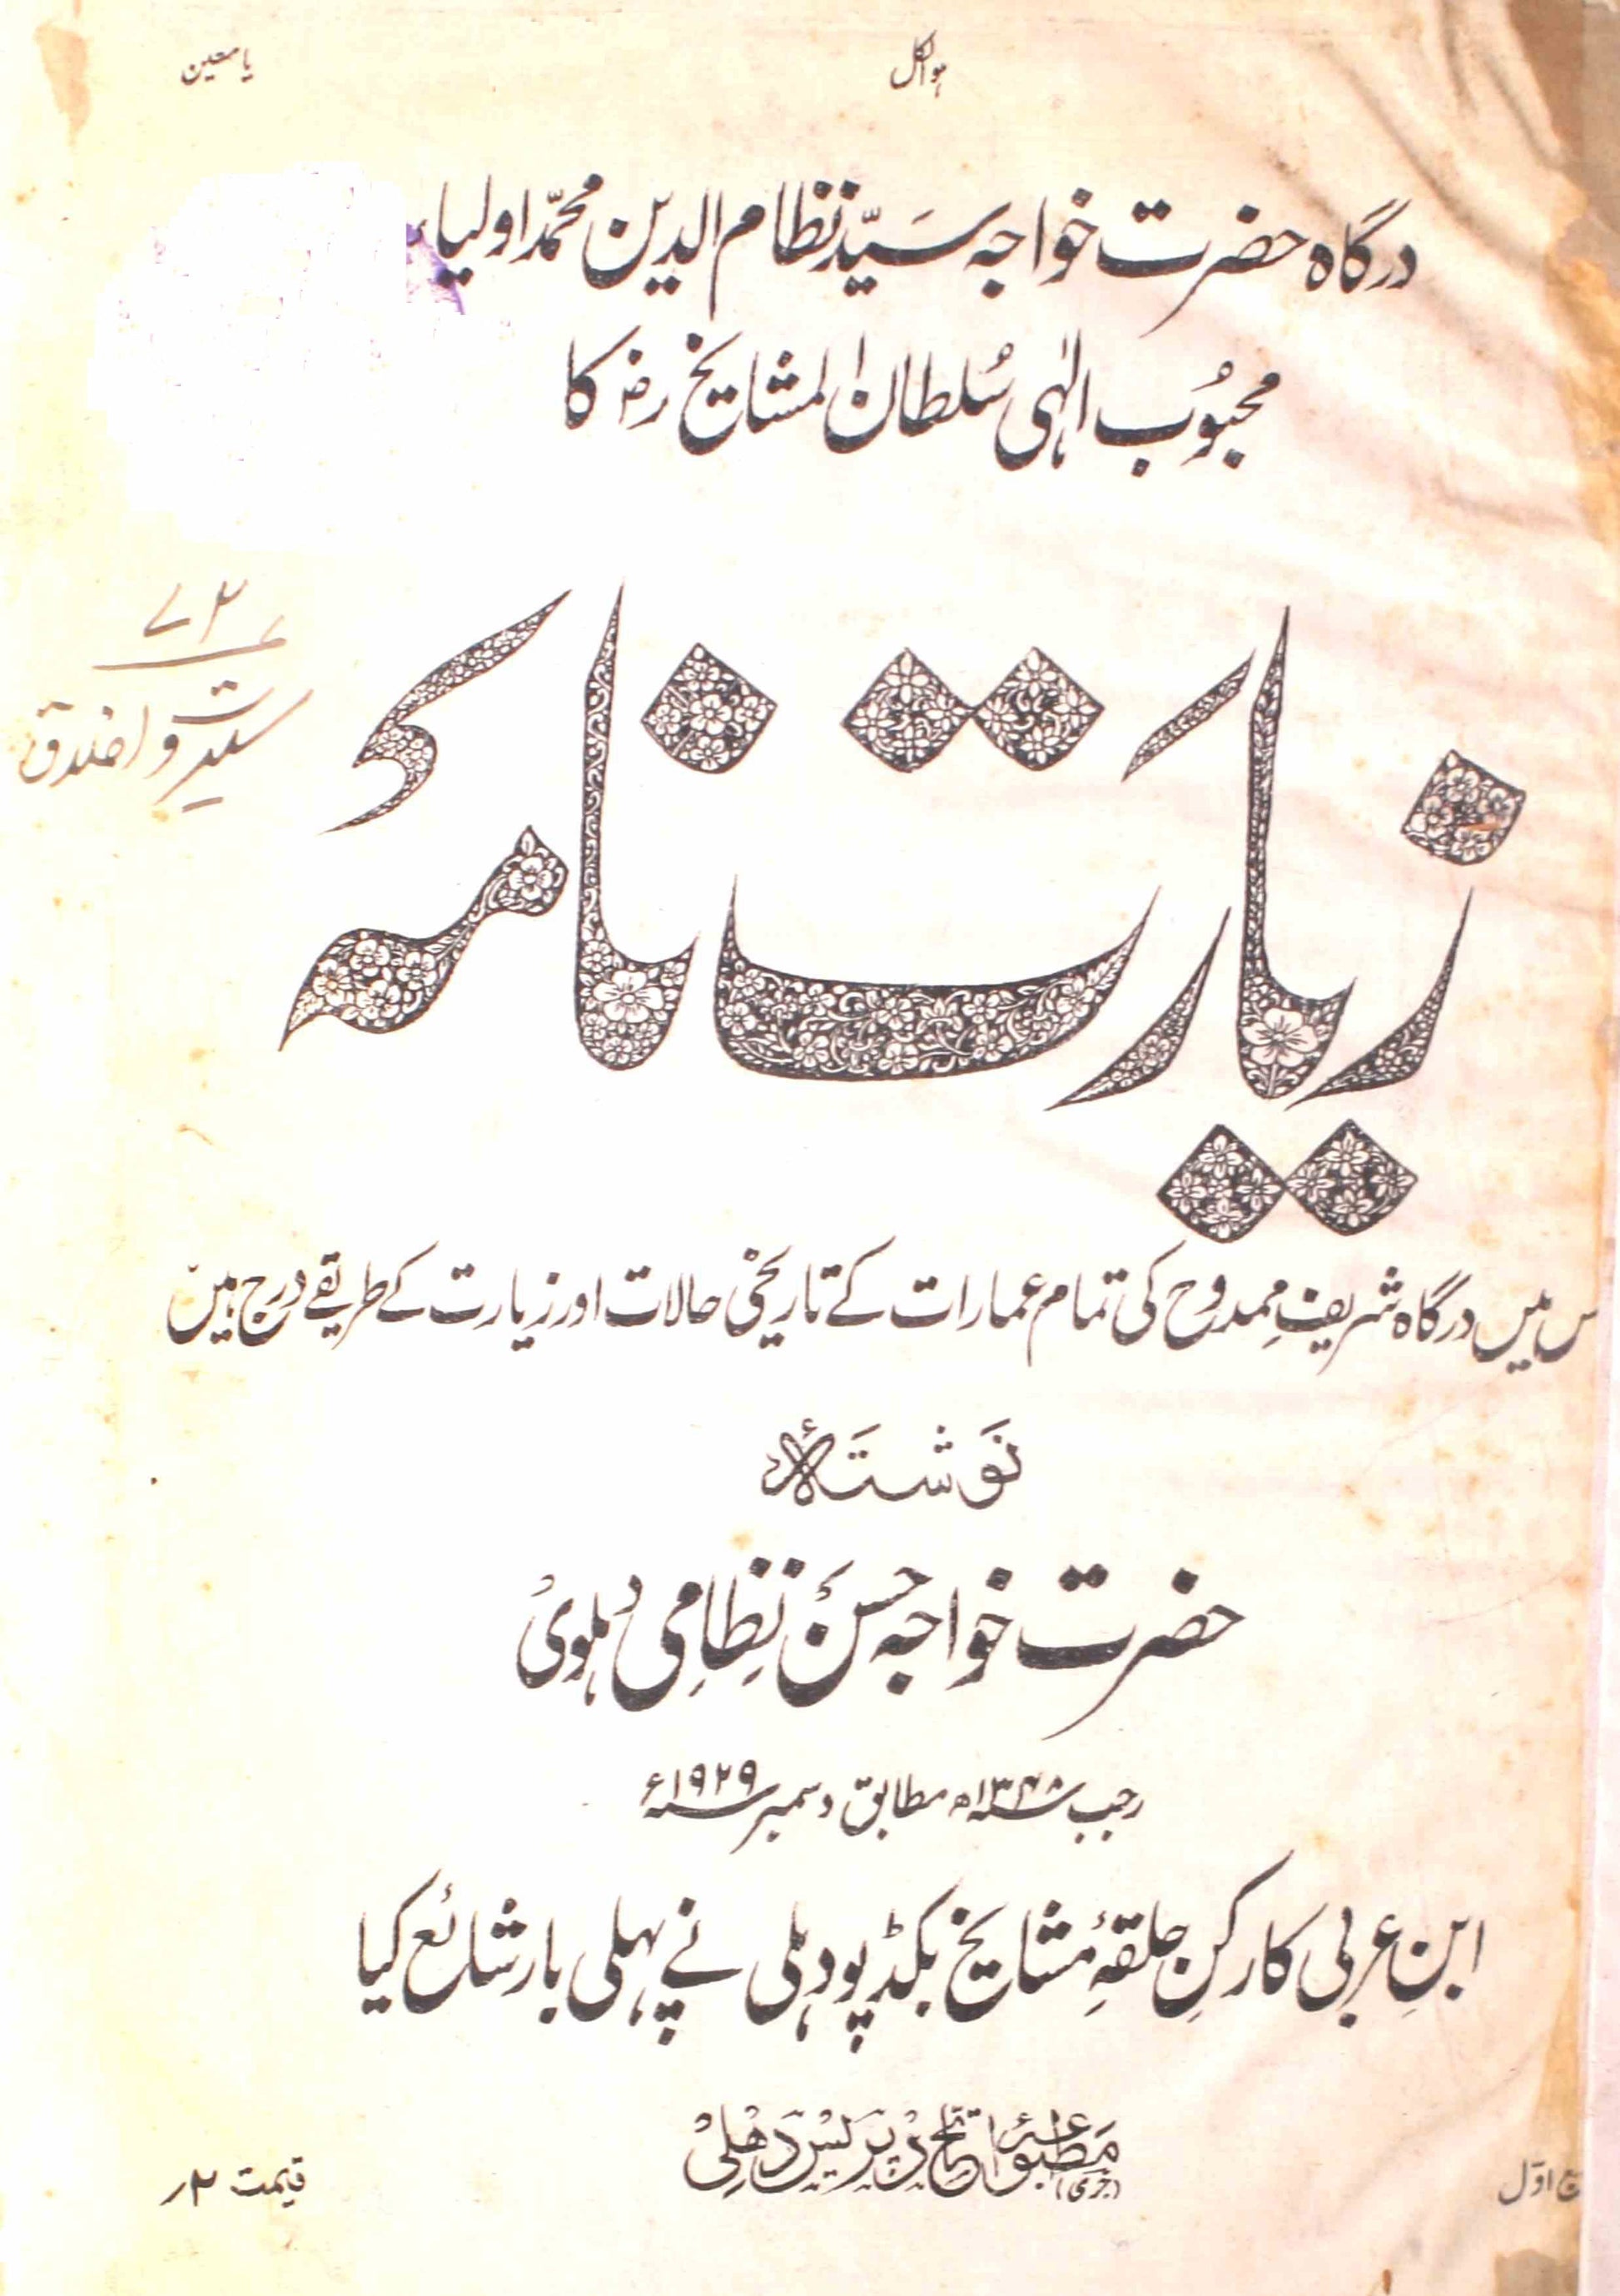 ہوالکل
یا معین
درگاہ حضرت خواجہ سیّد نظام الدین محمّد اولیاء
محبُوب الٰہی سُلطان المشایخ رضؓ کا
زیارت نامۂ
۷۲
سیرت و اخلاق
س میں درگاہ شریفِ ممدوح کی تمام عمارات کے تاریخی حالات اور زیارت کے طریقے درج ہیں
نَوشتَۂ
حضرت خواجہ حسنؔ نِظامِی دہلوی
رجب ۱۳۴۸ھ مطابق دسمبر ۱۹۲۹ء
ابنِ عربی کارکنِ حلقۂِ مشایخ بکڈپو دہلی نے پہلی بار شائع کیا
مَطبُوعَہ
پریس دَھلِی
اوّل
قیمت ۲؍